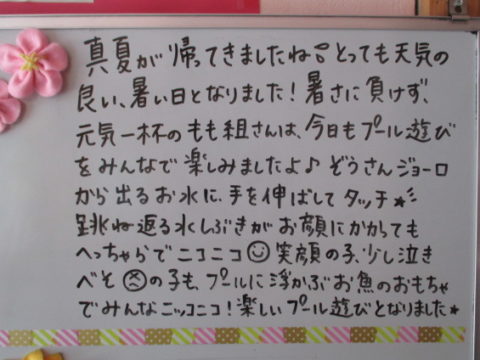 真夏が帰ってきましたね！とっても天気の
良い、暑い日となりました！暑さに負けず、
元気一杯のもも組さんは、今日もプール遊び
をみんなで楽しみましたよ♪ぞうさんジョーロ
から出るお水に、手を伸ばしてタッチ★
跳ね返る水しぶきがお顔にかかっても
へっちゃらでニコニコ☺笑顔の子、少し泣き
べそ☹の子も、プールに浮かぶお魚のおもちゃ
でみんなニッコニコ！楽しいプール遊びとなりました★